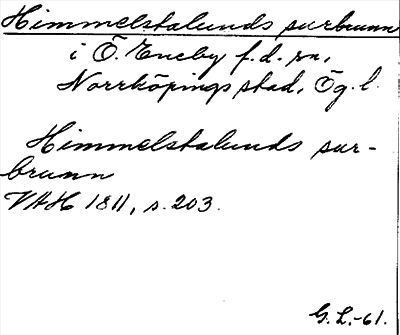 Himmelstalunds surbrunn
i Ö. Eneby f.d. sn,
Norrköpings stad, Ög. l.
Himmelstalunds sur-
brunn
VAH 1811, s. 203.
G.L.-61.